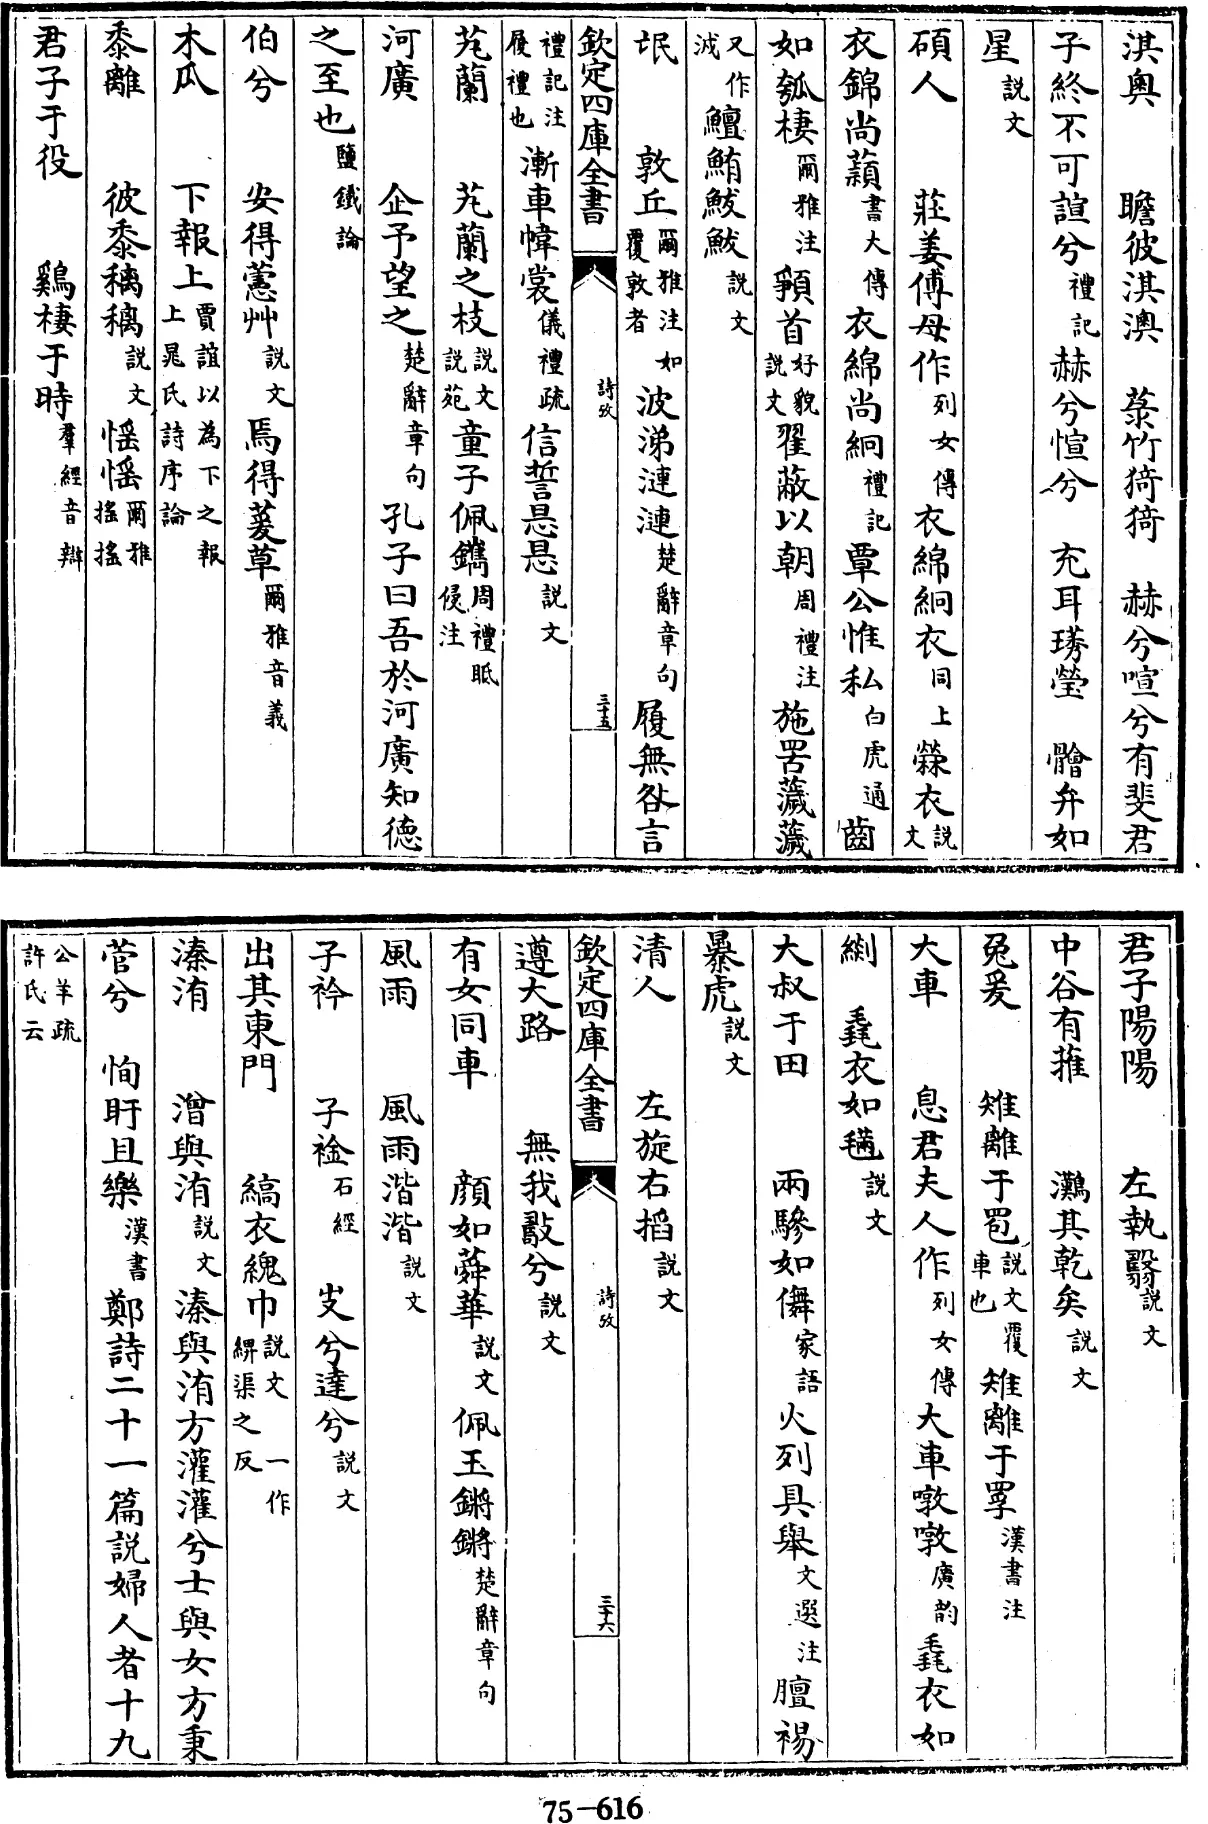 淇奥 瞻彼淇澳 菉竹猗猗 赫兮喧兮有斐君
子終不可諠兮禮記赫兮愃兮 充耳琇瑩 䯤弁如
星説文
碩人 莊姜傅母作列女傳衣綿絅衣同上㯋衣説文
衣錦尚蘏書大傳衣綿尚絅禮記覃公惟私白虎通齒
如瓠棲爾雅注頴首好貌説文翟蔽以朝周禮注施罟濊濊
又作泧鱣鮪鮁鮁説文
氓 敦丘爾雅注如覆敦者波涕漣漣楚辭章句履無咎言
禮記注履禮也漸車幃裳儀禮疏信誓㫜㫜説文
芄蘭 芄蘭之枝説文説苑童子佩鑴周禮眡祲注
河廣 企予望之楚辭章句孔子曰吾於河廣知德
之至也鹽鐵論
伯兮 安得藼艸説文焉得萲草爾雅音義
木瓜 下報上賈誼以為下之報上晁氏詩序論
黍離 彼黍穲穲説文愮愮爾雅搖搖
君子于役 鷄棲于時羣經音辯
欽定四庫全書 詩攷 三十五
君子陽陽 左執翳説文
中谷有蓷 灘其乾矣説文
兔爰 雉離于䍖説文覆車也雉離于罦漢書注
大車 息君夫人作列女傳大車啍啍廣韵毳衣如
緅 毳衣如𣯩説文
大叔于田 兩驂如儛家語火列具舉文選注膻裼
暴虎説文
清人 左旋右搯説文
遵大路 無我𢾭兮説文
有女同車 顔如蕣華説文佩玉鏘鏘楚辭章句
風雨 風雨湝湝説文
子衿 子䘳石經 𡴀兮達兮説文
出其東門 縞衣䰟巾説文一作綥渠之反
溱洧 潧與洧説文溱與洧方灌灌兮士與女方秉
菅兮 恂盱且樂漢書鄭詩二十一篇説婦人者十九
公羊疏許氏云
欽定四庫全書 詩攷 三十六
75-616